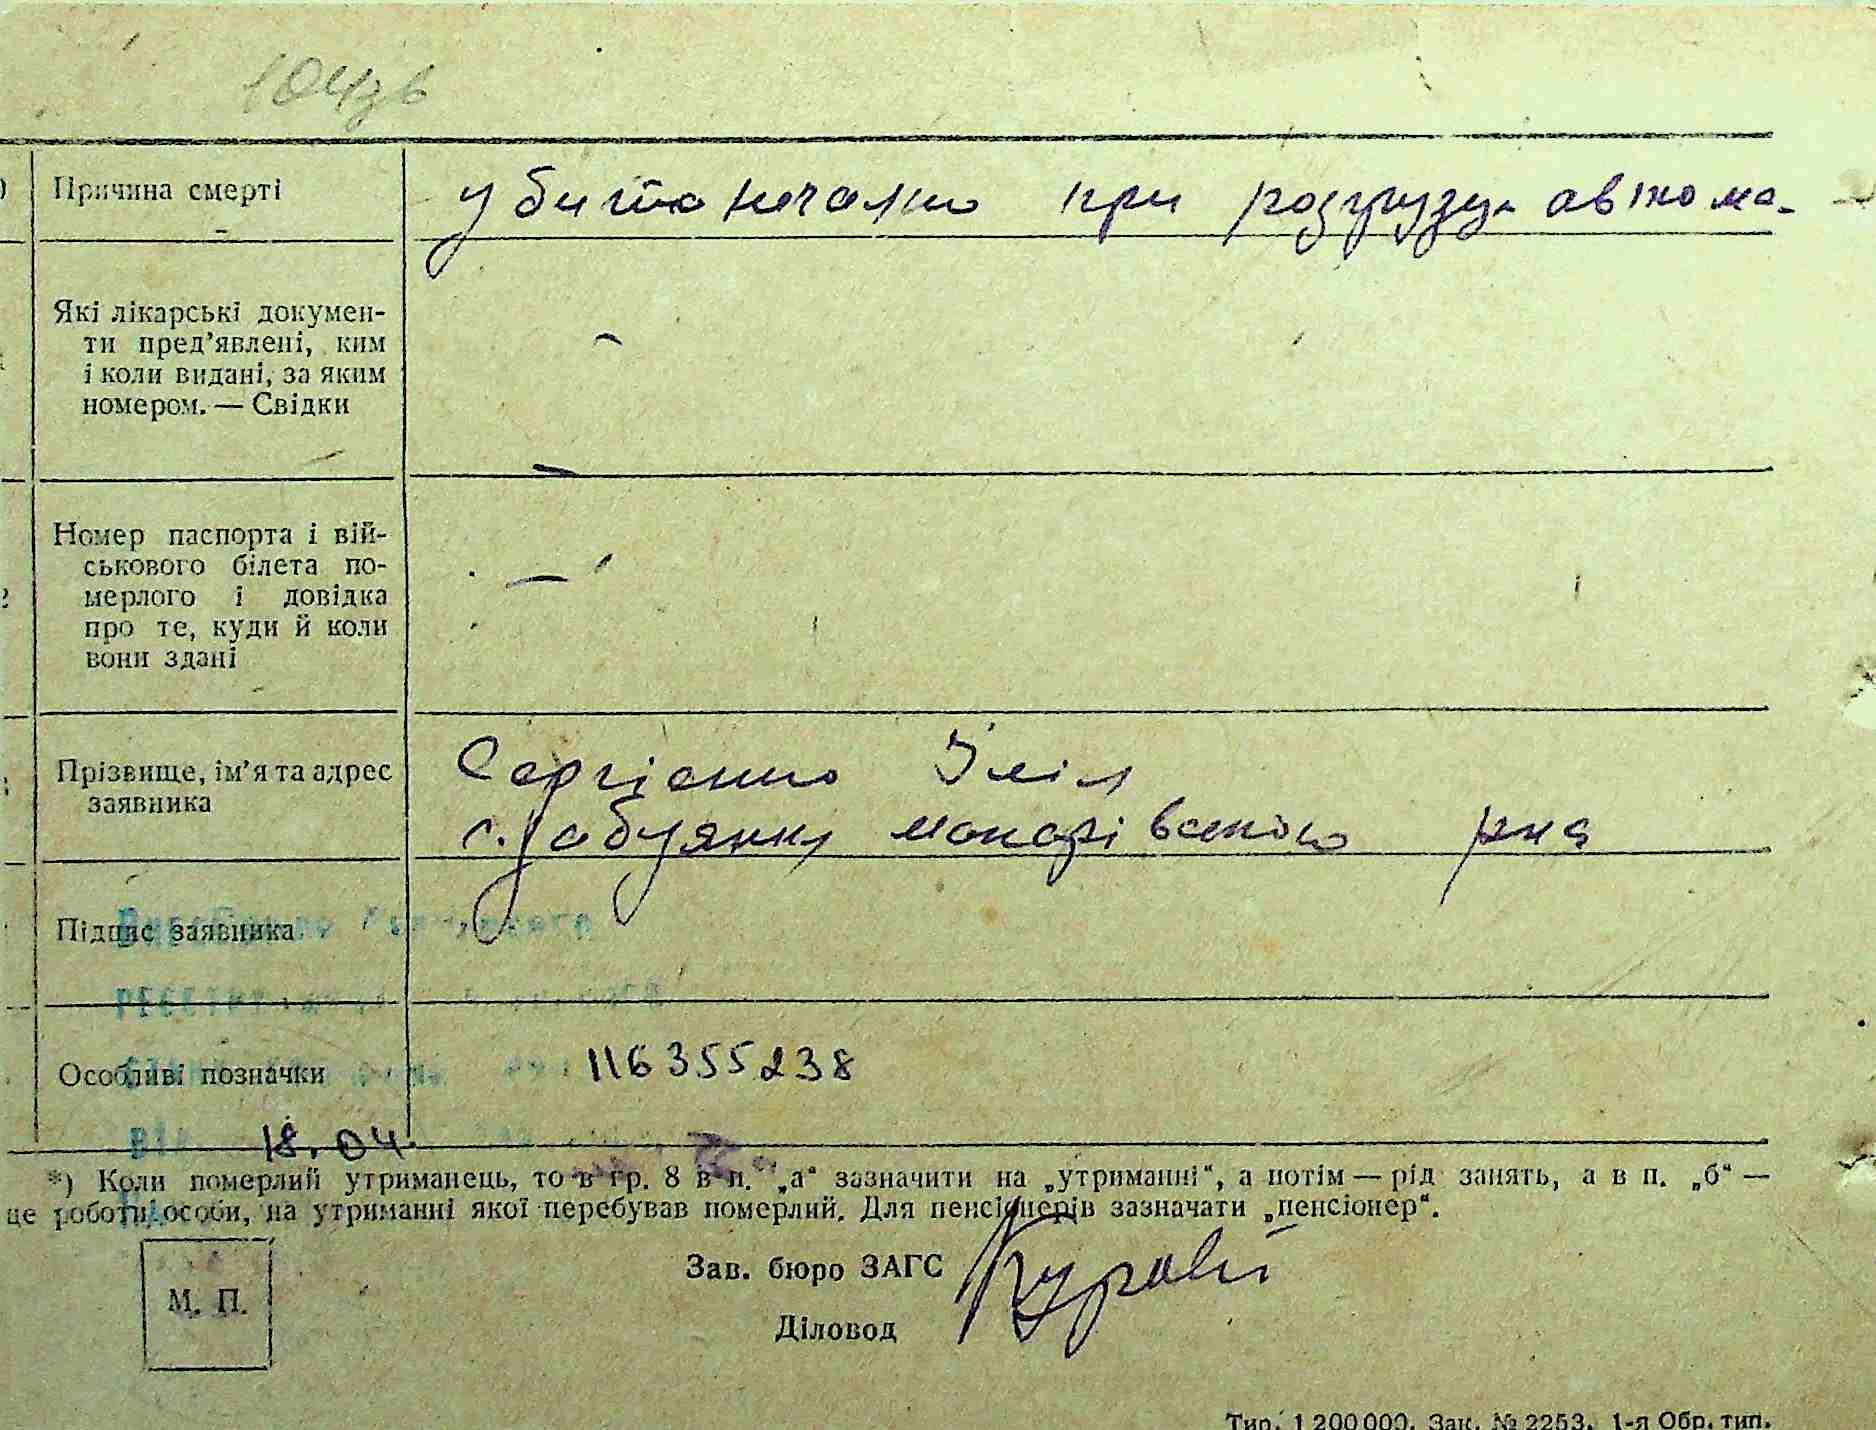 104зв
Причина смерті
убито нечаяно при розгрузці автома-
Які лікарські докумен-
ти пред’явлені, ким
і коли видані, за яким
номером. — Свідки
—
Номер паспорта і вій-
ськового білета по-
мерлого і довідка
про те, куди й коли
вони здані
—
Прізвище, ім’я та адрес
заявника
Сергієнко Ілія
с. Забуяння Макарівського р-на
Підпис заявника
Особливі позначки
116355238
18.04
*) Коли померлий утриманець, то в гр. 8 в п. „а“ зазначити на „утриманні“, а потім — рід занять, а в п. „б“ —
це роботи особи, на утриманні якої перебував померлий. Для пенсіонерів зазначати „пенсіонер“.
Зав. бюро ЗАГС
М. П.
Діловод
Тир. 1 200 000. Зак. № 2253. 1-я Обр. тип.